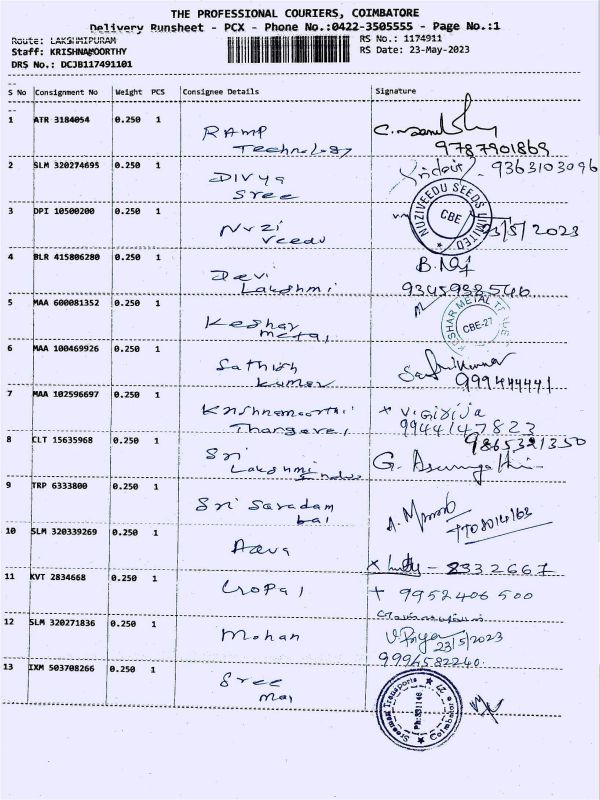 THE PROFESSIONAL COURIERS, COIMBATORE
Delivery Runsheet - PCX - Phone No.:0422-3505555 - Page No.:1
Route: LAKSHMIPURAM
RS No.: 1174911
Staff: KRISHNAMOORTHY
RS Date: 23-May-2023
DRS No.: DCJB117491101
S No Consignment No Weight PCS Consignee Details Signature
1 ATR 3184054 0.250 1 RAMP
Technology
9787901869
2 SLM 320274695 0.250 1 DIVYA
Sree
9363103096
3 DPI 10500200 0.250 1 Nuzi
Veedu
NUZIVEEDU SEEDS LIMITED
CBE
23/5/2023
4 BLR 415806280 0.250 1 Devi
Lakshmi
9345938546
5 MAA 600081352 0.250 1 Keshar
metal
KESHAR METAL
CBE-27
6 MAA 100469926 0.250 1 Sathish
Kumar
999444441
7 MAA 102596697 0.250 1 Krishnamoorthi
Thangavel
x V. Girija
9944147823
8 CLT 15635968 0.250 1 Sri
Lakshmi
9865321350
9 TRP 6333800 0.250 1 Sri Saradam
bal
7708014163
10 SLM 320339269 0.250 1
2332667
11 KVT 2834668 0.250 1 Gopal
+ 9952406500
12 SLM 320271836 0.250 1 Mohan
V Priya
23/5/2023
9994582240
13 IXM 503708266 0.250 1 Sree
Mai
Coimbatore